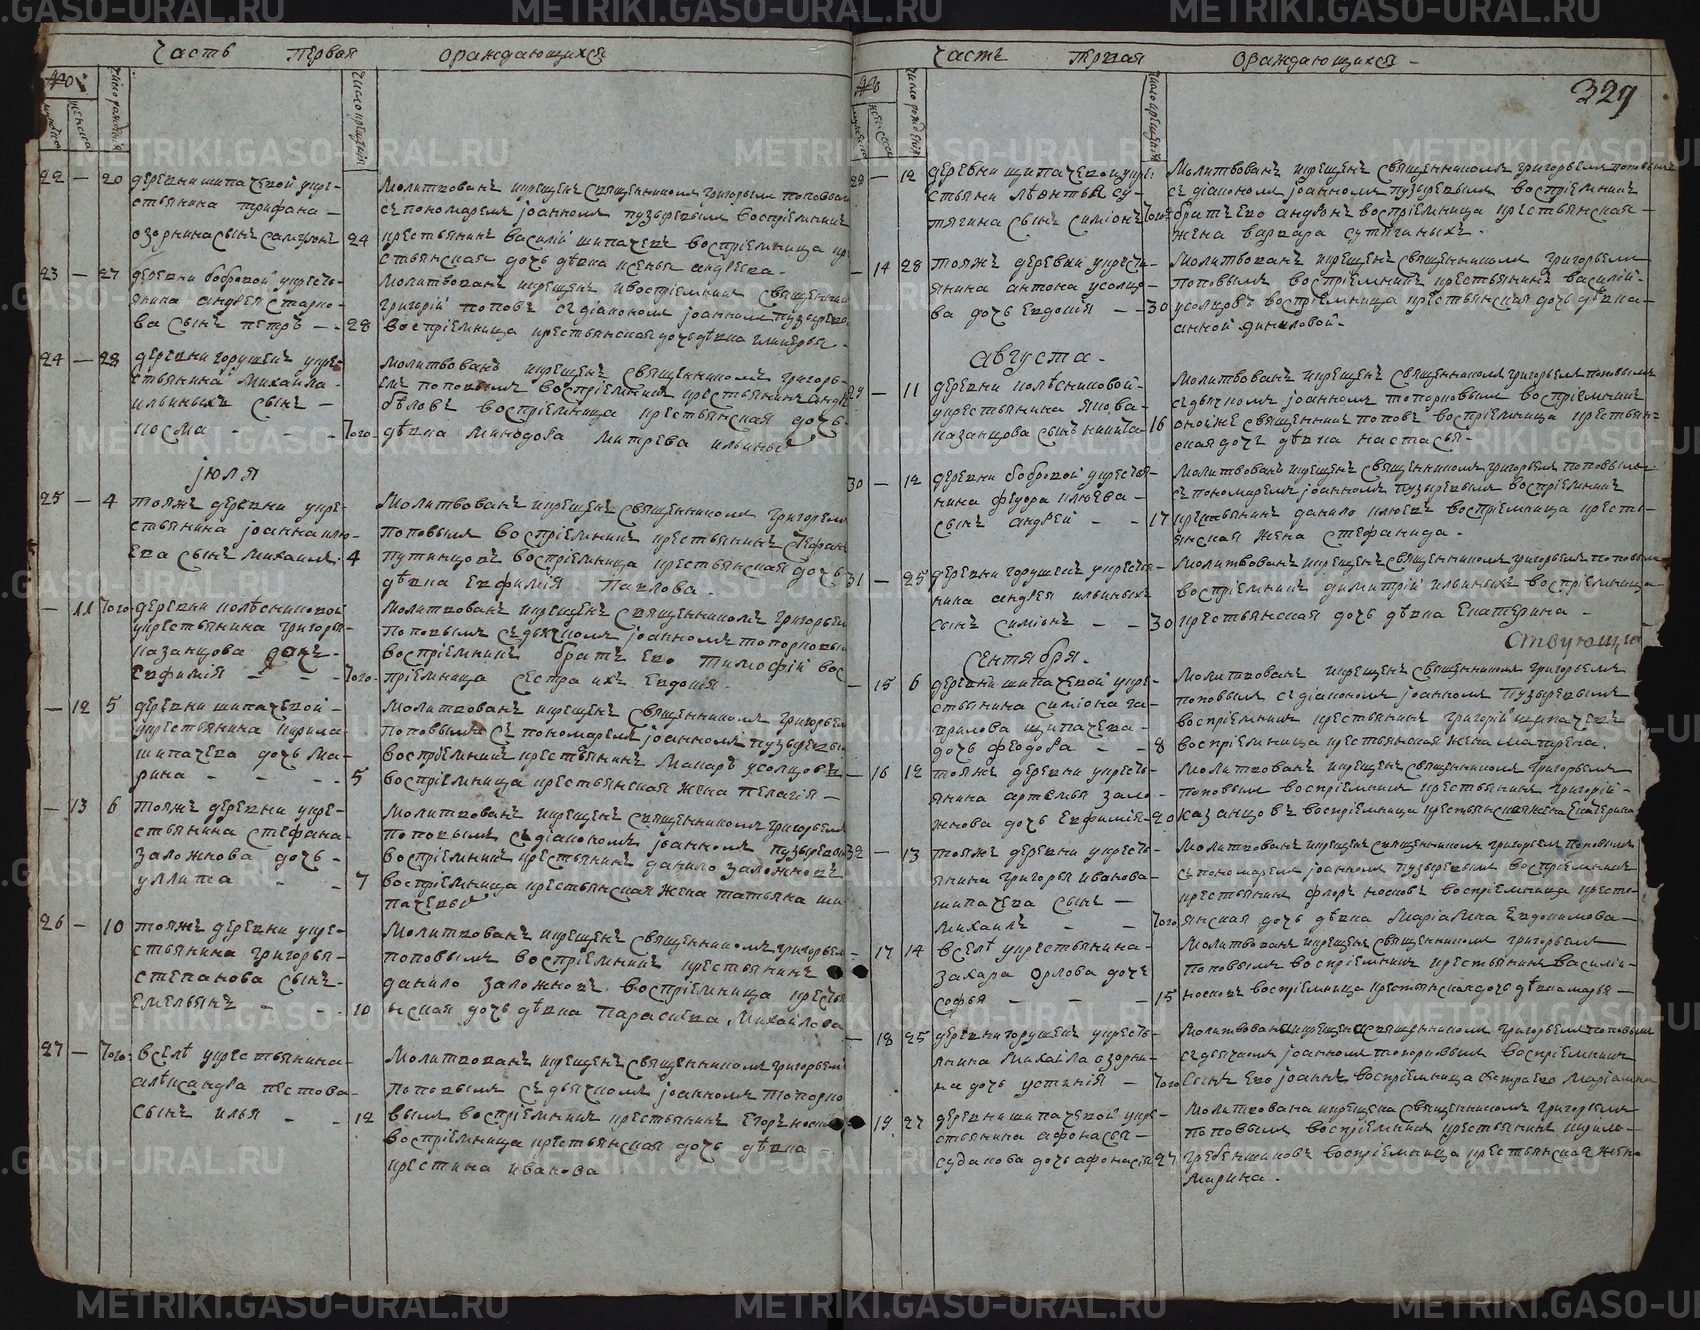 Часть Первая ораждающихся
22 — 20 деревни шипачевой укре-
стьянина трифана —
озорнина сынъ сампсонъ 24
Молитвованъ икрещенъ священникомъ григорьем поповым
съ пономаремъ іоанномъ пузыревымъ воспріемникъ
крестьянинъ василій шипачевъ воспріемница кре-
стьянская дочь дѣвка ксенья андреева.
23 — 27 деревни бобровой укресть-
янина андрея старко-
ва сынъ петръ — — 28
Молитвованъ икрещенъ ивоспріемникъ священникъ
григорій поповъ съ діакономъ іоанномъ пузыревы
воспріемница крестьянская дочь дѣвка гликерья.
24 — 28 деревни горушекъ укре-
стьянина Михаила
ильиныхъ сынъ —
косма — — — Того-
Молитвованъ икрещенъ священникомъ григорь-
емъ поповымъ воспріемникъ крестьянинъ андр
бѣловъ воспріемница крестьянская дочь-
дѣвка минодора митрева ильиныхъ
іюля
25 — 4 тояжъ деревни укре-
стьянина іоанна клю-
ева сынъ михаилъ. 4
Молитвованъ икрещенъ священникомъ григорьемъ
поповымъ воспріемникъ крестьянинъ стефанъ
путинцовъ воспріемница крестьянская дочь
дѣвка евфимія Павлова.
— 11 Того деревни колѣсниковой
укрестьянина григорья-
казанцова дочь-
Евфимія — — — Того-
Молитвованъ икрещенъ священникомъ григорьем
поповымъ съ дьячкомъ іоанномъ топорковым
воспріемникъ братъ его тимофій вос
пріемница сестра ихъ Евдокія.
— 12 5 деревни шипачевой —
укрестьянина кирила
шипачева дочь ма-
рина — — — 5
Молитвованъ икрещенъ священникомъ григорьем
поповымъ съ пономаремъ іоанномъ пузыревы
воспріемникъ крестьянинъ макаръ усолцовъ
воспріемница крестьянская жена пелагія —
— 13 6 тояжъ деревни укре-
стьянина стефана-
заложнова дочь —
уллита — — 7
Молитвованъ икрещенъ священникомъ григорьем
поповымъ съ діакономъ іоанномъ пузыревы
воспріемникъ крестьянинъ данило заложновъ
воспріемница крестьянская жена татьяна ши
пачевы
26 — 10 тояжъ деревни укре-
стьянина григорья-
степанова сынъ-
Емельянъ — — 10
Молитвованъ икрещенъ священникомъ григорьем
поповымъ воспріемникъ крестьянинъ
данило заложновъ воспріемница крестья
нская дочь дѣвка Парасковья Михайлова
27 — Того- вселѣ укрестьянина-
алѣксандра пестова-
сынъ илья — — 12
Молитвованъ икрещенъ священникомъ григорьемъ
поповымъ съ дьячкомъ іоанномъ топорко
вымъ воспріемникъ крестьянинъ Егоръ носк
воспріемница крестьянская дочь дѣвка
крестина иванова
Часть Первая ораждающихся —
327
— 12 деревни шипачевой укре-
стьяни лѣонтья су-
тягина сынъ симіонъ Того-
Молитвованъ икрещенъ священникомъ григорьемъ поповымъ
съ діакономъ іоанномъ пузыревымъ воспріемникъ
братъ его андрей воспріемница крестьянская —
жена варвара сутягиныхъ.
— 14 28 тояжъ деревни укресть-
янина антона усолцо-
ва дочь Евдокія — — 30
Молитвованъ икрещенъ священникомъ григорьемъ
поповымъ воспріемникъ крестьянинъ василій-
усолцовъ воспріемница крестьянская дочь дѣвка-
Августа.
— 11 деревни колѣсниковой-
укрестьянина якова-
казанцова сынъ никита- 16
Молитвованъ икрещенъ священникомъ григорьемъ поповымъ
съ дьячкомъ іоанномъ топорковымъ воспріемникъ
онойже священникъ поповъ воспріемница крестьян-
ская дочь дѣвка настасья.
30 — 12 деревни бобровой укресть-
янина федора клюева —
сынъ андрей — — 17
Молитвованъ икрещенъ священникомъ григорьемъ поповымъ
съ пономаремъ іоанномъ пузыревымъ воспріемникъ
крестьянинъ данило клюевъ воспріемница кресть-
янская жена стефанида.
31 — 25 деревни горушекъ укрестья-
нина андрея ильиныхъ
сынъ симіонъ — — 30
Молитвованъ икрещенъ священникомъ григорьемъ поповым
воспріемникъ димитрій ильиныхъ воспріемница —
крестьянская дочь дѣвка Екатерина.
Сентября.
— 15 6 деревни шипачевой укре-
стьянина симіона га-
врилова шипачева-
дочь феодора — — 8
Молитвованъ икрещенъ священникомъ григорьемъ
поповымъ съ діакономъ іоанномъ пузыревымъ
воспріемникъ крестьянинъ григорій шипачевъ
воспріемница крестьянская жена матрена.
— 16 12 тояжъ деревни укресть-
янина артемья зало-
жнова дочь Евфимія- 20
Молитвованъ икрещенъ священникомъ григорьемъ
поповымъ воспріемникъ крестьянинъ григорій-
казанцовъ воспріемница крестьянская жена Екатерина
32 — 13 тояжъ деревни укресть-
янина григорья иванова-
шипачева сынъ —
михаилъ — — Того
Молитвованъ икрещенъ священникомъ григорьемъ поповымъ
съ пономаремъ іоанномъ пузыревымъ воспріемникъ
крестьянинъ флоръ носковъ воспріемница кресть-
янская дочь дѣвка Маріамна Евдокимова—
— 17 14 вселѣ укрестьянина-
захара орлова дочь
софья — — — 15
Молитвованъ икрещенъ священникомъ григорьемъ
поповымъ воспріемникъ крестьянинъ василій-
носковъ воспріемница крестьянская дочь дѣвка марья—
— 18 25 деревни горушекъ укресть-
янина михаила озорни-
на дочь устинія — Того
Молитвована икрещена священникомъ григорьемъ поповымъ
съ дьячкомъ іоанномъ топорковымъ воспріемникъ
сынъ его іоаннъ воспріемница сестра его Маріамна
— 19 27 деревни шипачевой укре-
стьянина афонасы-
судакова дочь афонасія 27
Молитвована икрещена священникомъ григорьемъ
поповымъ воспріемникъ крестьянинъ кирило-
гребенщиковъ воспріемница крестьянская жена
Марина.
METRIKI.GASO-URAL.RU